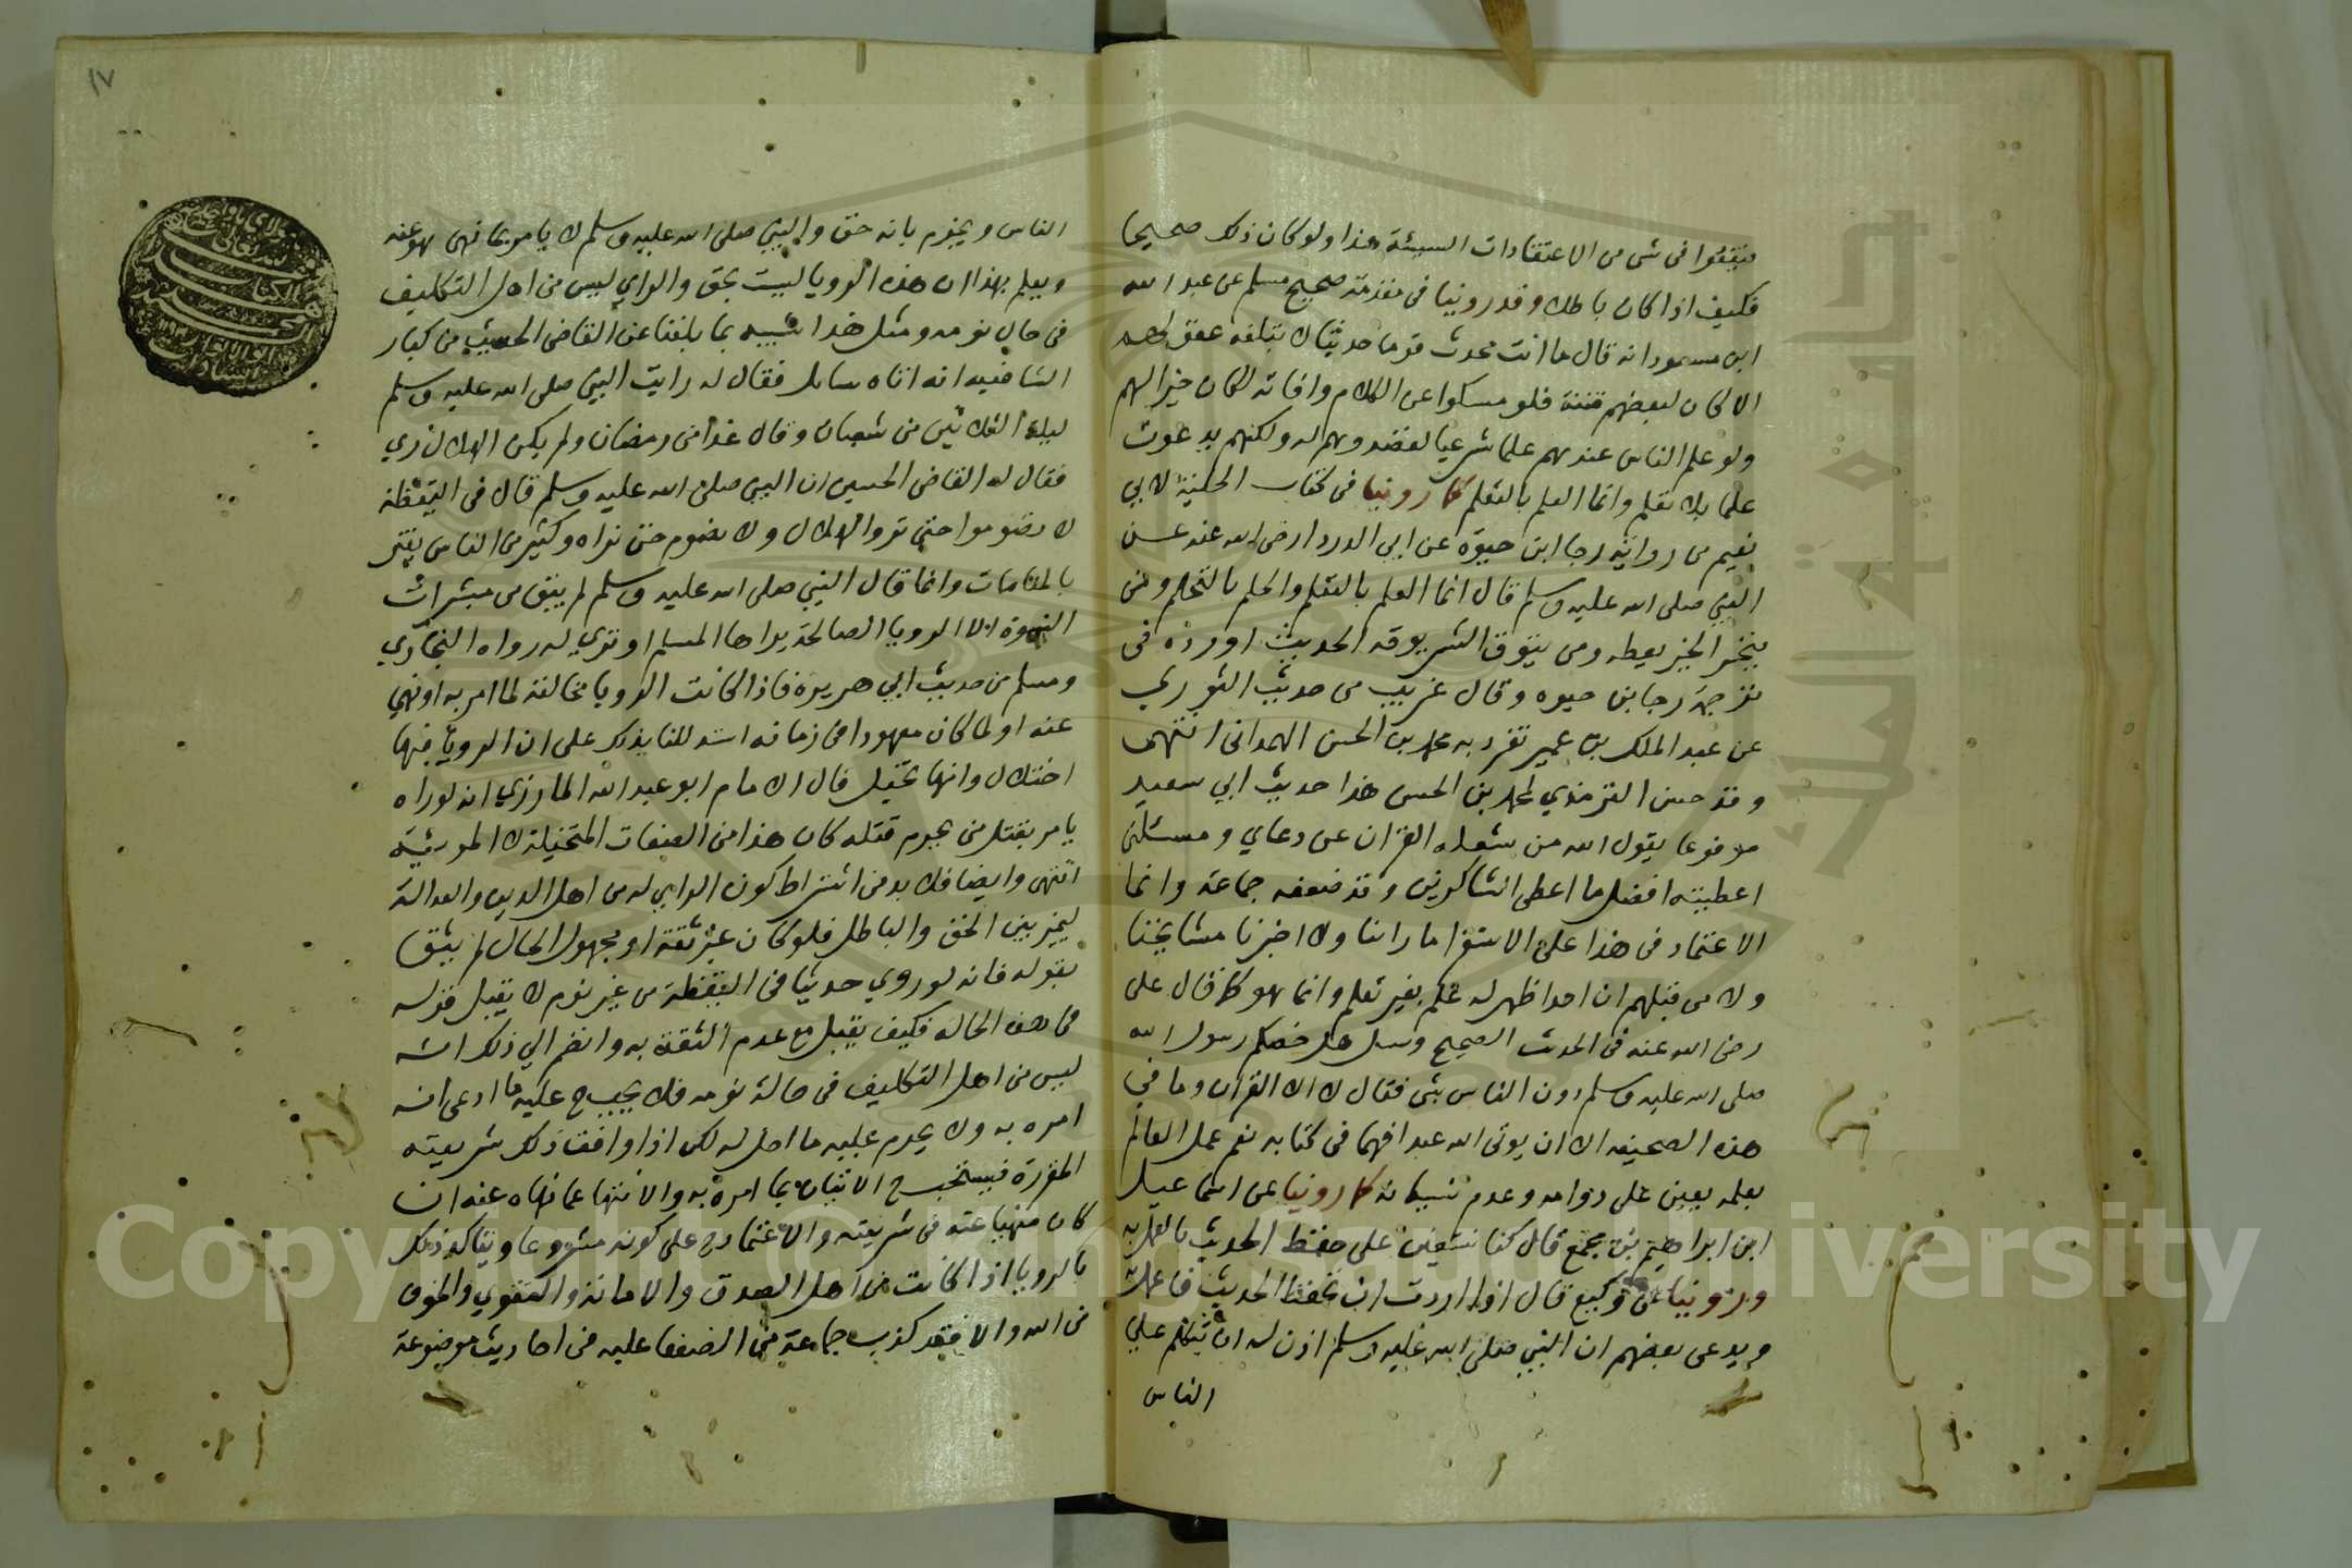 فيقعوا فى شى من الاعتقادات السيئة هذا ولو كان ذلك صحيحا
فكيف اذا كان باطلا وقد روينا فى مقدمة صحيح مسلم عن عبد الله
ابن مسعود انه قال ما انت محدث قوما حديثا لا تبلغه عقولهم
الا كان لبعضهم فتنة فلو سكوا عن الكلام وافاته لكان خيرا لهم
ولو علم الناس عندهم علما شرعيا لقصدوهم له ولكنهم يدعون
علما بلا تعلم وانما العلم بالتعلم كما روينا فى كتاب الحلية لابي
نعيم من رواية رجا ابن حيوة عن ابي الدرداء رضى الله عنه عن
النبي صلى الله عليه وسلم قال انما العلم بالتعلم والحلم بالتحلم ومن
يتخير الخير يعطه ومن يتوق الشر يوقه الحديث اورده فى
ترجمة رجا بن حيوه وقال غريب من حديث الثوري
عن عبد الملك بن عمير تفرد به محمد بن الحسن الهمدانى انتهى
وقد حسن الترمذي لمحمد بن الحسن هذا حديث ابي سعيد
مرفوعا يقول الله من شغله القران عن دعاي ومسئلتى
اعطيته افضل ما اعطى الشاكرين وقد ضعفه جماعة وانما
الاعتماد فى هذا على الاستقرا ما راينا ولا اخبرنا مشايخنا
ولا من قبلهم ان احدا ظهر له علم بغير تعلم وانما هو كما قال على
رضى الله عنه فى الحديث الصحيح وسئل هل خصكم رسول الله
صلى الله عليه وسلم دون الناس بشى فقال لا الا القران وما في
هذه الصحيفه الا ان يوتى الله عبدا فهما فى كتابه نعم عمل العالم
بعلمه يعين على دوامه وعدم نسيانه كما روينا عن اسماعيل
ابن ابراهيم بن مجمع قال كنا نستعين على حفظ الحديث بالعمل به
وروينا عن وكيع قال اذا اردت ان تحفظ الحديث فاعمل به
ويدعى بعضهم ان النبي صلى الله عليه وسلم اذن له ان يتكلم على
الناس
١٧
الناس ويجزم بانه حق والنبي صلى الله عليه وسلم لا يامر بما نهى هو عنه
ويعلم بهذا ان هذه الرويا ليست بحق والراي ليس من اهل التكليف
فى حال نومه ومثل هذا شبيه بما بلغنا عن القاضى الحسين من كبار
الشافعيه انه اتاه سايل فقال له رايت النبي صلى الله عليه وسلم
ليلة الثلاثين من شعبان وقال غدا من رمضان ولم يكن الهلال روي
فقال له القاضى الحسين ان النبي صلى الله عليه وسلم قال فى اليقظة
لا تصوموا حتى تروا الهلال ولا نصوم حتى نراه وكثير من الناس يغتر
بالمنامات وانما قال النبي صلى الله عليه وسلم لم يبق من مبشرات
النبوة الا الرويا الصالحة يراها المسلم او ترى له رواه البخاري
ومسلم من حديث ابي هريرة فاذا كانت الرويا مخالفة لما امر به او نهي
عنه او لما كان معهودا فى زمانه استدللنا بذلك على ان الرويا فيها
اختلال وانها تخيل قال الامام ابو عبد الله المازري انه لو راه
يامر بقتل من يحرم قتله كان هذا من الصفات المتخيلة لا المرئية
انتهى وايضا فلا بد من اشتراط كون الراي له من اهل الدين والعدالة
ليميز بين الحق والباطل فلو كان غير ثقة او مجهول الحال لم يثق
بقوله فانه لو روي حديثا فى اليقظة من غير نوم لا يقبل قوله
فى هذه الحالة فكيف يقبل مع عدم الثقة به وانضم الي ذلك انه
ليس من اهل التكليف فى حالة نومه فلا يجب ح عليه ما ادعى انه
امره به ولا يحرم عليه ما احل له لكن اذا وافق ذلك شريعته
المقررة فيستحب ح الاتيان بما امره به والانتها عما نهاه عنه ان
كان منهيا عنه فى شريعته والاعتماد ح على كونه مشروعا ويتاكد ذلك
بالرويا اذا كانت من اهل الصدق والامانة والتقوي والخوف
من الله والا فقد كذب جماعة من الضعفا عليه فى احاديث موضوعة
Copyright © King Saud University
جامعة الملك